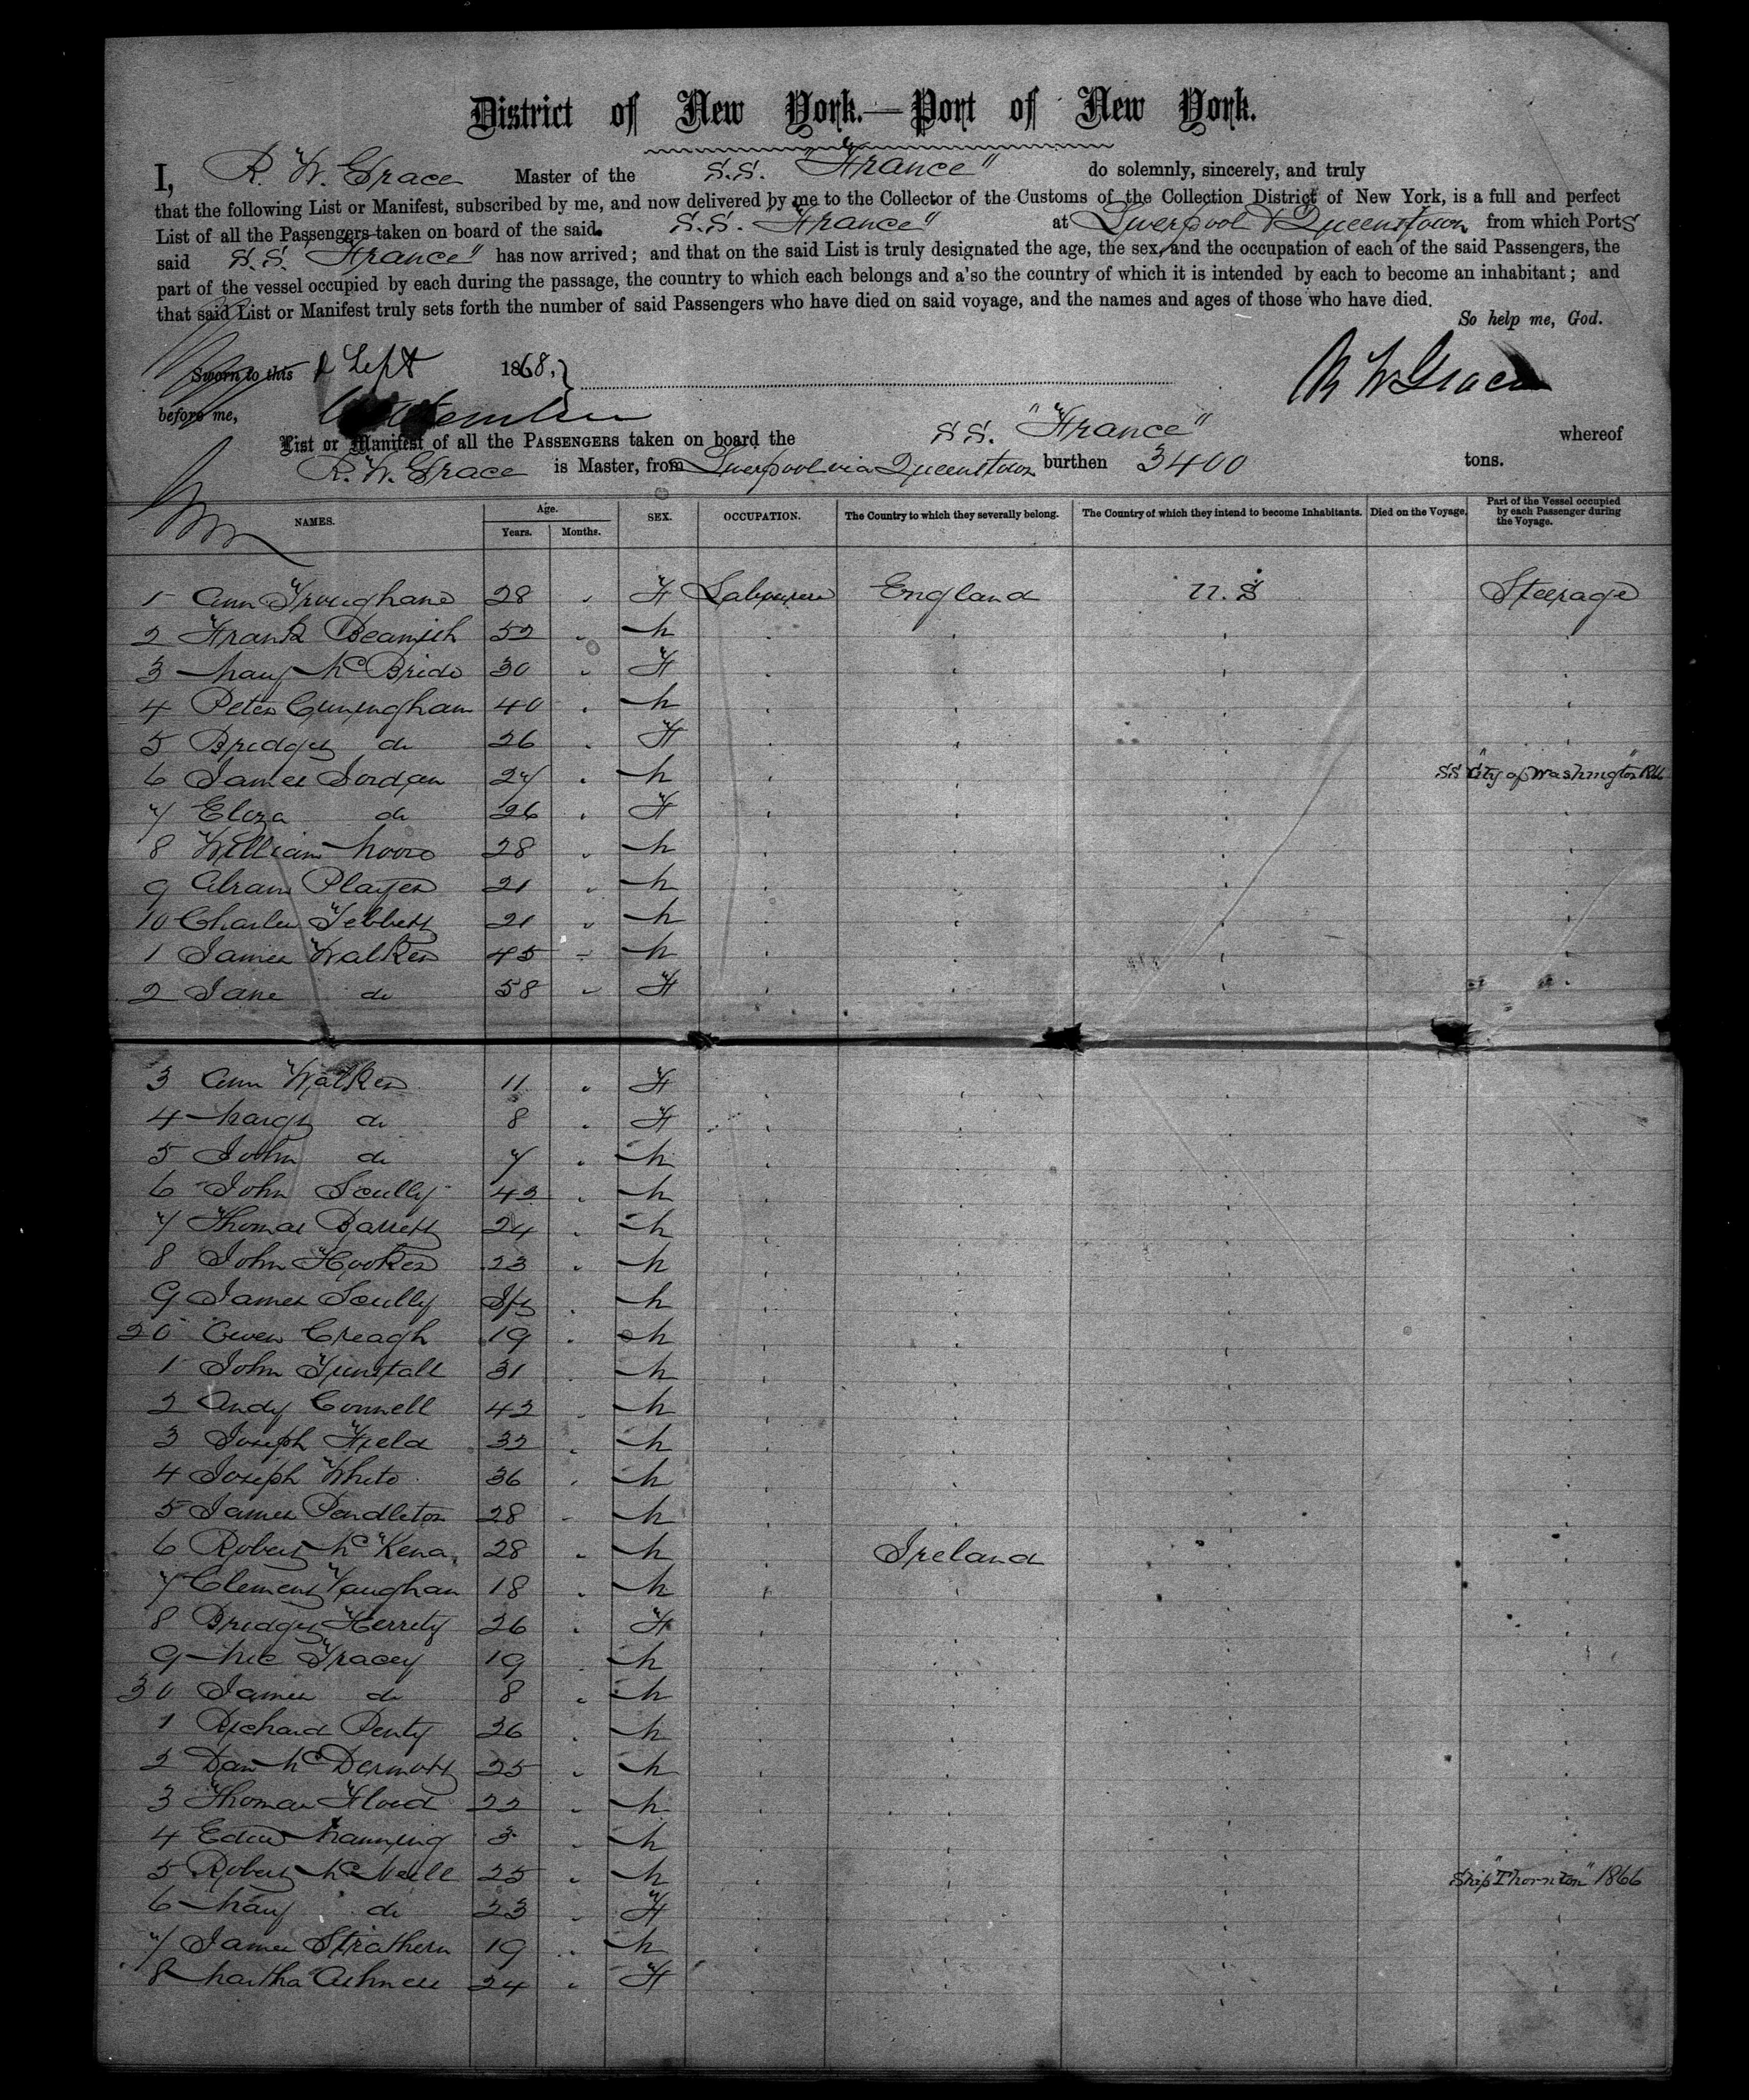 District of New York.—Port of New York.
I, R. W. Grace Master of the S.S. "France" do solemnly, sincerely, and truly
that the following List or Manifest, subscribed by me, and now delivered by me to the Collector of the Customs of the Collection District of New York, is a full and perfect
List of all the Passengers taken on board of the said S.S. "France" at Liverpool & Queenstown from which Ports
said S.S. "France" has now arrived; and that on the said List is truly designated the age, the sex, and the occupation of each of the said Passengers, the
part of the vessel occupied by each during the passage, the country to which each belongs and a'so the country of which it is intended by each to become an inhabitant; and
that said List or Manifest truly sets forth the number of said Passengers who have died on said voyage, and the names and ages of those who have died.
So help me, God.
Sworn to this Sept 1868. R W Grace
before me,
List or Manifest of all the PASSENGERS taken on board the SS. "France" whereof
R. W. Grace is Master, from Liverpool via Queenstown burthen 3400 tons.
NAMES. Age. Years. Months. SEX. OCCUPATION. The Country to which they severally belong. The Country of which they intend to become Inhabitants. Died on the Voyage. Part of the Vessel occupied by each Passenger during the Voyage.
1 Ann 28 F Labourers England U.S Steerage
2 Frank Beamish 52 M
3 Mary McBride 30 F
4 Peter Cuningham 40 M
5 Bridget do 26 F
6 James Jordan 27 M SS "City of Washington"
7 Eliza do 26 F
8 William Moore 28 M
9 Abram Player 21 M
10 Charles Tebbett 21 M
1 James Walker 45 M
2 Jane do 58 F
3 Ann Walker 11 F
4 Margt do 8 F
5 John do 7 M
6 John Scully 42 M
7 Thomas Barrett 24 M
8 John Hooker 23 M
9 James Scully M
20 Owen Creagh 19 M
1 John Tunstall 31 M
2 Andy Connell 42 M
3 Joseph Field 32 M
4 Joseph White 36 M
5 James Pendleton 28 M
6 Robert McKena 28 M Ireland
7 Clement Vaughan 18 M
8 Bridget Herrity 26 F
9 Mic Tracey 19 M
30 James do 8 M
1 Richard Penty 26 M
2 Dan McDermott 25 M
3 Thomas Flood 22 M
4 Edwd Manning 3 M
5 Robert McNeill 25 M Ship "Thornton" 1866
6 Mary do 23 F
7 James Strathern 19 M
8 Martha 24 F